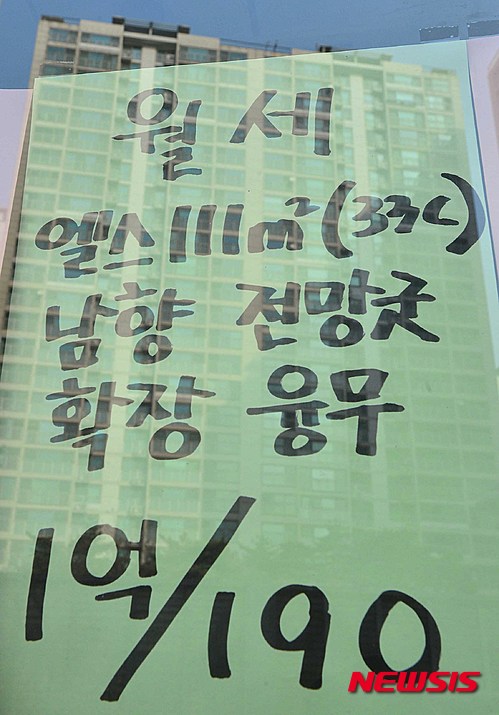 월세
엘스 111m²(33C)
남향 전망굿
확장 융무
1억/190
NEWSIS